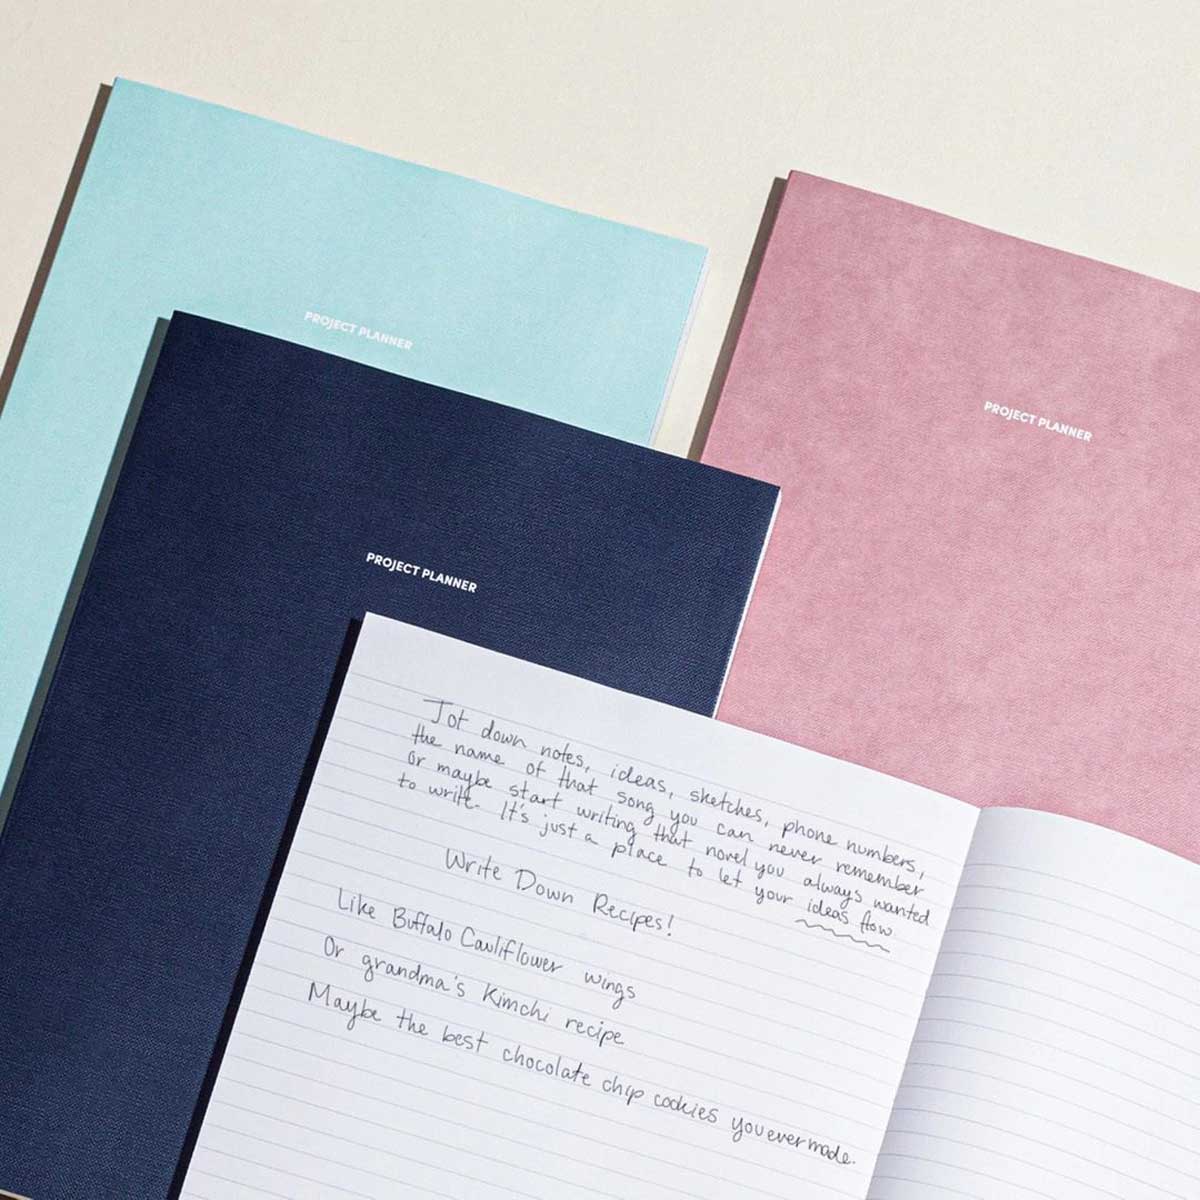 PROJECT PLANNER
PROJECT PLANNER
PROJECT PLANNER
Jot down notes, ideas, sketches, phone numbers,
the name of that song you can never remember
or maybe start writing that novel you always wanted
to write. It's just a place to let your ideas flow
Write Down Recipes!
Like Buffalo Cauliflower wings
Or grandma's Kimchi recipe
Maybe the best chocolate chip cookies you ever made.